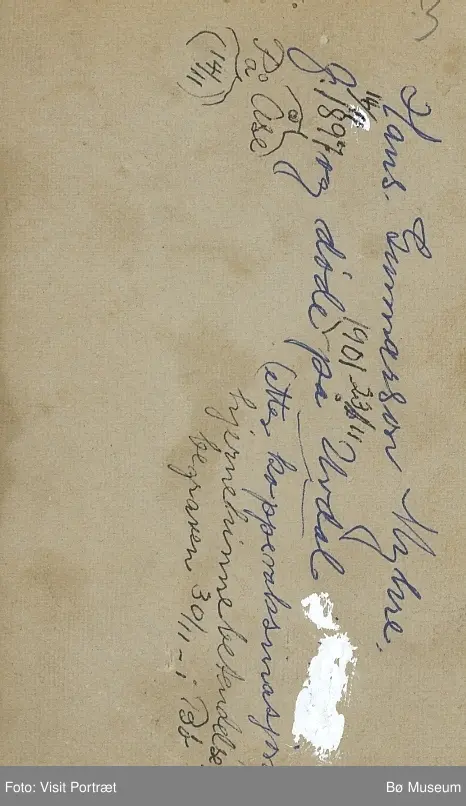 Hans. Gunnarson Myhre.
14/11
f. 1897 og døde på Uvdal
1901 23/11
På Åse
(14/11)
(etter koppevaksinasjon
hjernehinnebetendelse
begraven 30/11 - i Bø
Foto: Visit Portræt
Bø Museum